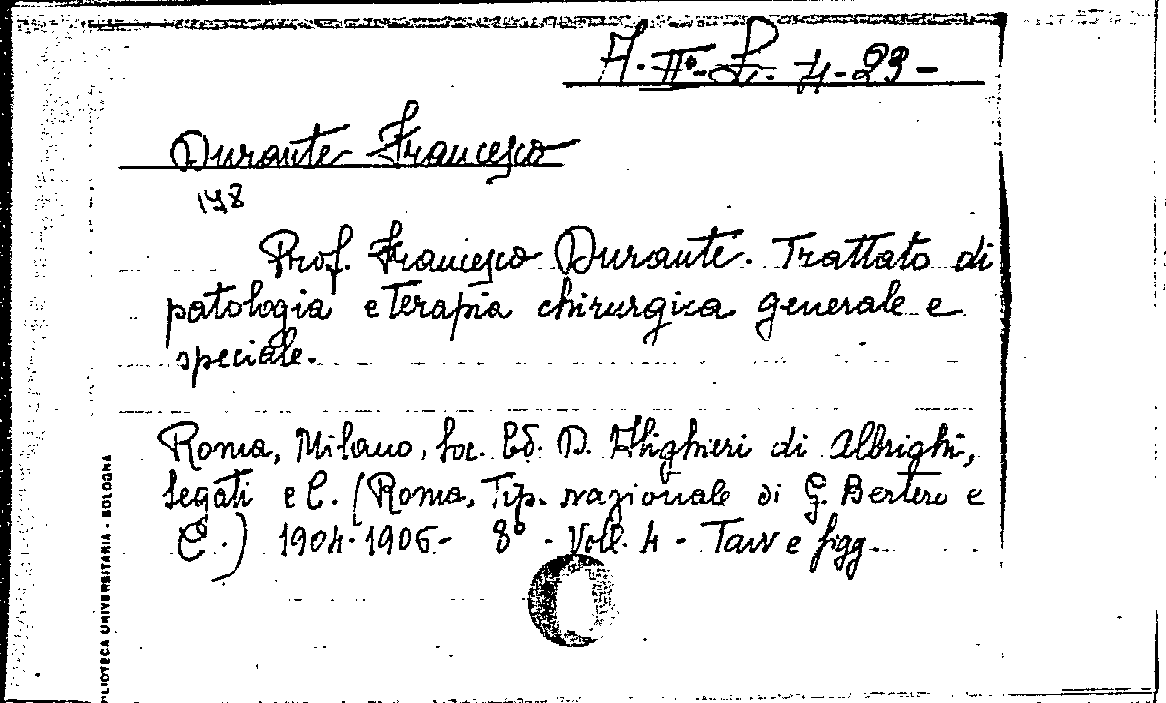 A. IIª. L. 4 - 23 -
Durante Francesco
178
Prof. Francesco Durante. Trattato di
patologia e terapia chirurgica generale e
speciale.
Roma, Milano, Soc. Ed. D. Alighieri di Albrighi,
Segati e C. (Roma, Tip. nazionale di G. Bertero e
C.) 1904-1906 - 8º - Voll. 4 - Tavv e figg.
BLIOTECA UNIVERSITARIA - BOLOGNA